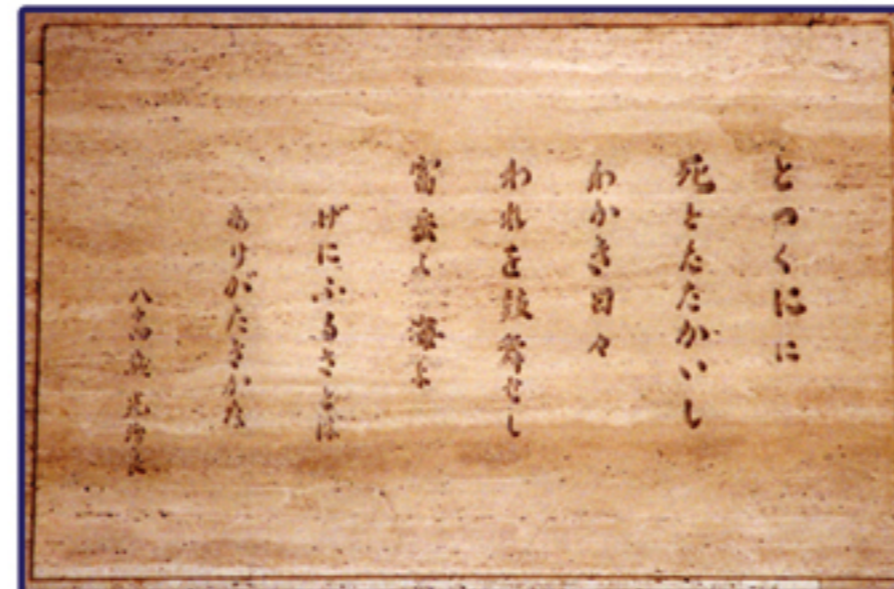 とつくにに
死とたたかいし
わかき日々
われを鼓舞せし
富岳よ 海よ
げにふるさとは
ありがたきかな
八十四歳 光治良